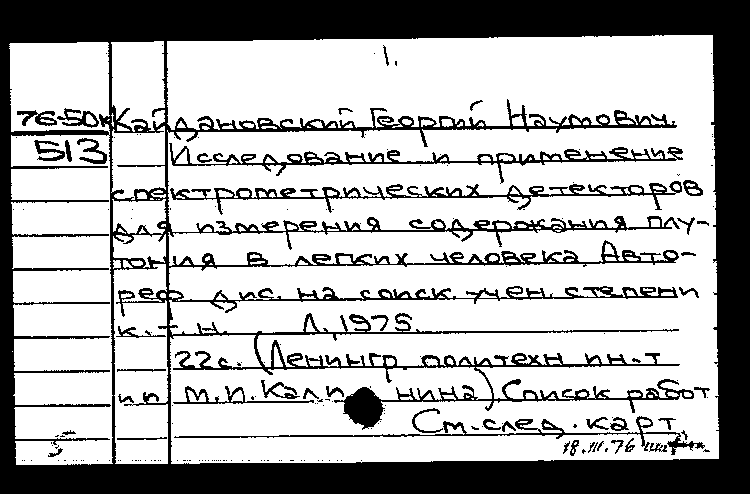 1.
76-50к Кайдановский, Георгий Наумович.
513 Исследование и применение
спектрометрических детекторов
для измерения содержания плу-
тония в легких человека. Авто-
реф. дис. на соиск. учен. степени
к.т.н. Л., 1975.
22с. (Ленингр. политехн ин-т
им М.И. Калинина) Список работ
См. след. карт
5 18.III.76